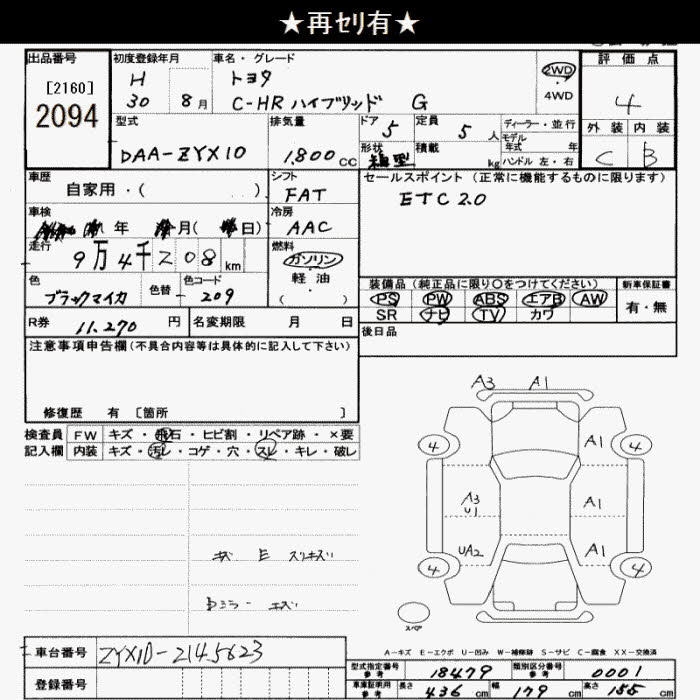 ★再セリ有★
出品番号
[2160]
2094
初度登録年月
H
30 8月
車名・グレード
トヨタ
C-HR ハイブリッド G
2WD
・
4WD
評価点
4
外装 内装
C B
型式
DAA-ZYX10
排気量
1,800 CC
ドア 5
定員 5 人
ディーラー・並行
モデル
年式 年
形状
積載 kg
ハンドル 左・右
車歴
自家用・( )
シフト
FAT
セールスポイント (正常に機能するものに限ります)
ETC2.0
車検
年 月( 日)
冷房
AAC
走行
9万4千208km
燃料
ガソリン
軽油
( )
色
ブラックマイカ
色替
色コード
209
装備品 (純正品に限り○をつけてください)
PS PW ABS エアB AW
SR ナビ TV カワ
新車保証書
有・無
R券 11,270 円
名変期限 月 日
後日品
注意事項申告欄(不具合内容等は具体的に記入して下さい)
修復歴 有 [箇所 ]
検査員
記入欄
FW キズ・飛石・ヒビ割・リペア跡・×要
内装 キズ・汚レ・コゲ・穴・スレ・キレ・破レ
キズ E スリキズ
A3 A1
4 A1 4
A3
U1
A1
UA2 A1
4 4
スペア
A-キズ E-エクボ U-凹み W-補修跡 S-サビ C-腐食 XX-交換済
車台番号 ZYX10-2145623
登録番号
型式指定番号
参考
18479
類別区分番号
参考
0001
車車証明用
参考
長さ 436 cm 幅 179 cm 高さ 155 cm